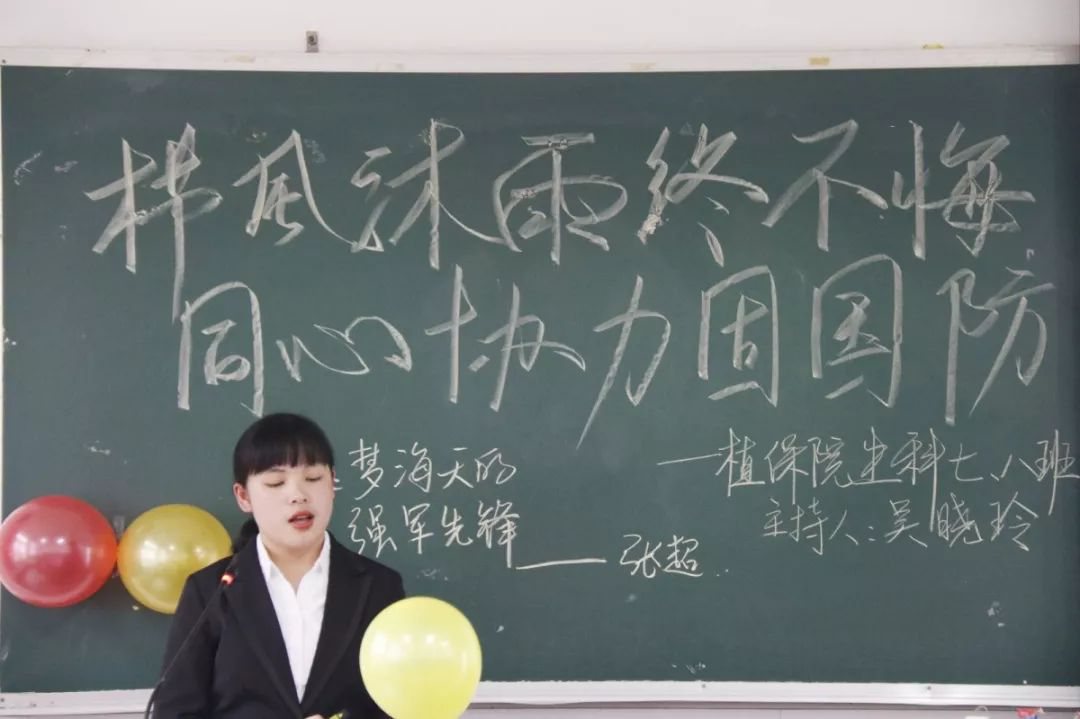 栉风沐雨终不悔
同心协力固国防
梦海天的
强军先锋
——张超
—植保院生科七、八班
主持人:吴晓玲